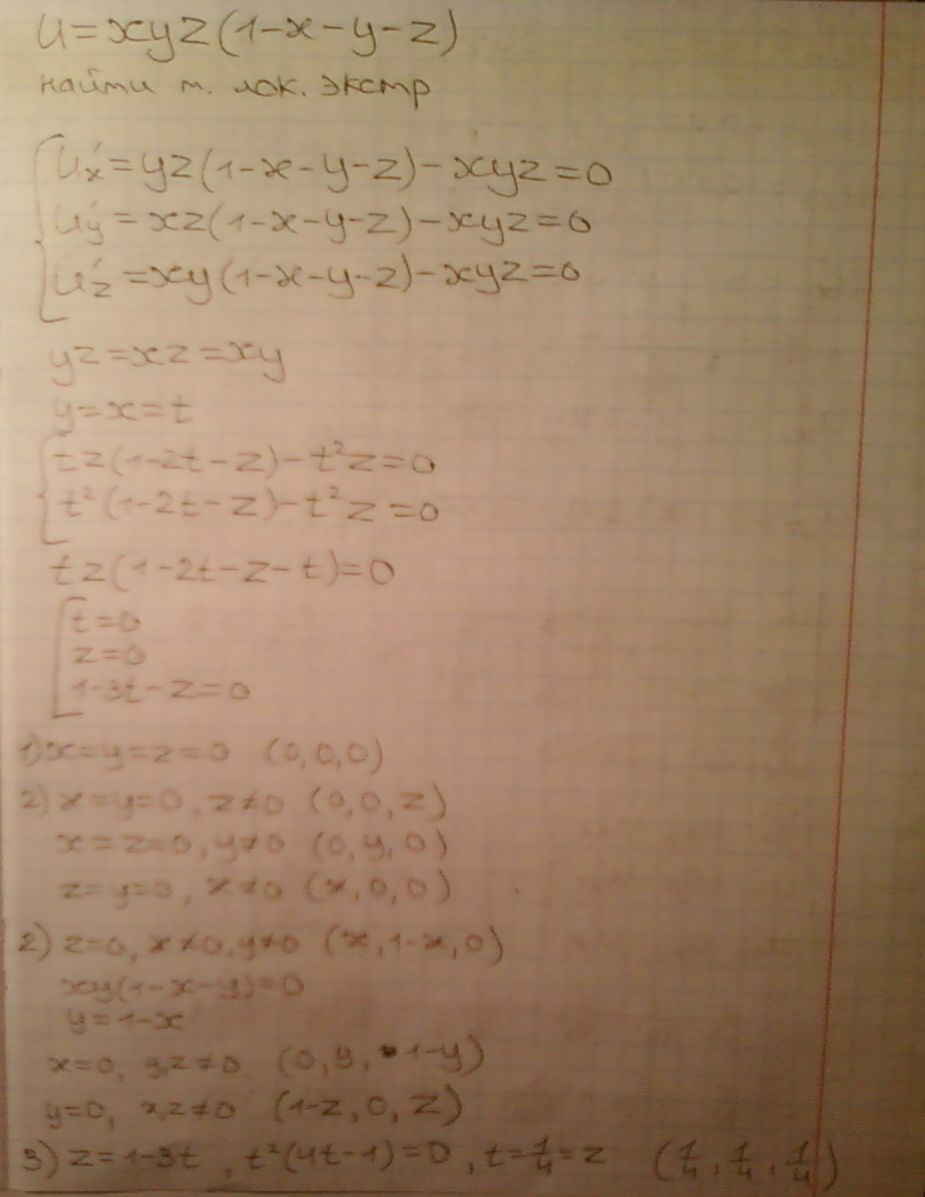 u=xyz(1-x-y-z)
найти т. лок. экстр
u'x=yz(1-x-y-z)-xyz=0
u'y=xz(1-x-y-z)-xyz=0
u'z=xy(1-x-y-z)-xyz=0
yz=xz=xy
y=x=t
tz(1-2t-z)-t²z=0
t²(1-2t-z)-t²z=0
tz(1-2t-z-t)=0
t=0
z=0
1-3t-z=0
1) x=y=z=0 (0,0,0)
2) x=y=0, z≠0 (0,0,z)
x=z=0, y≠0 (0,y,0)
z=y=0, x≠0 (x,0,0)
2) z=0, x≠0, y≠0 (x,1-x,0)
xy(1-x-y)=0
y=1-x
x=0, y,z≠0 (0,y,1-y)
y=0, x,z≠0 (1-z,0,z)
3) z=1-3t, t²(4t-1)=0, t=1/4=z (1/4,1/4,1/4)